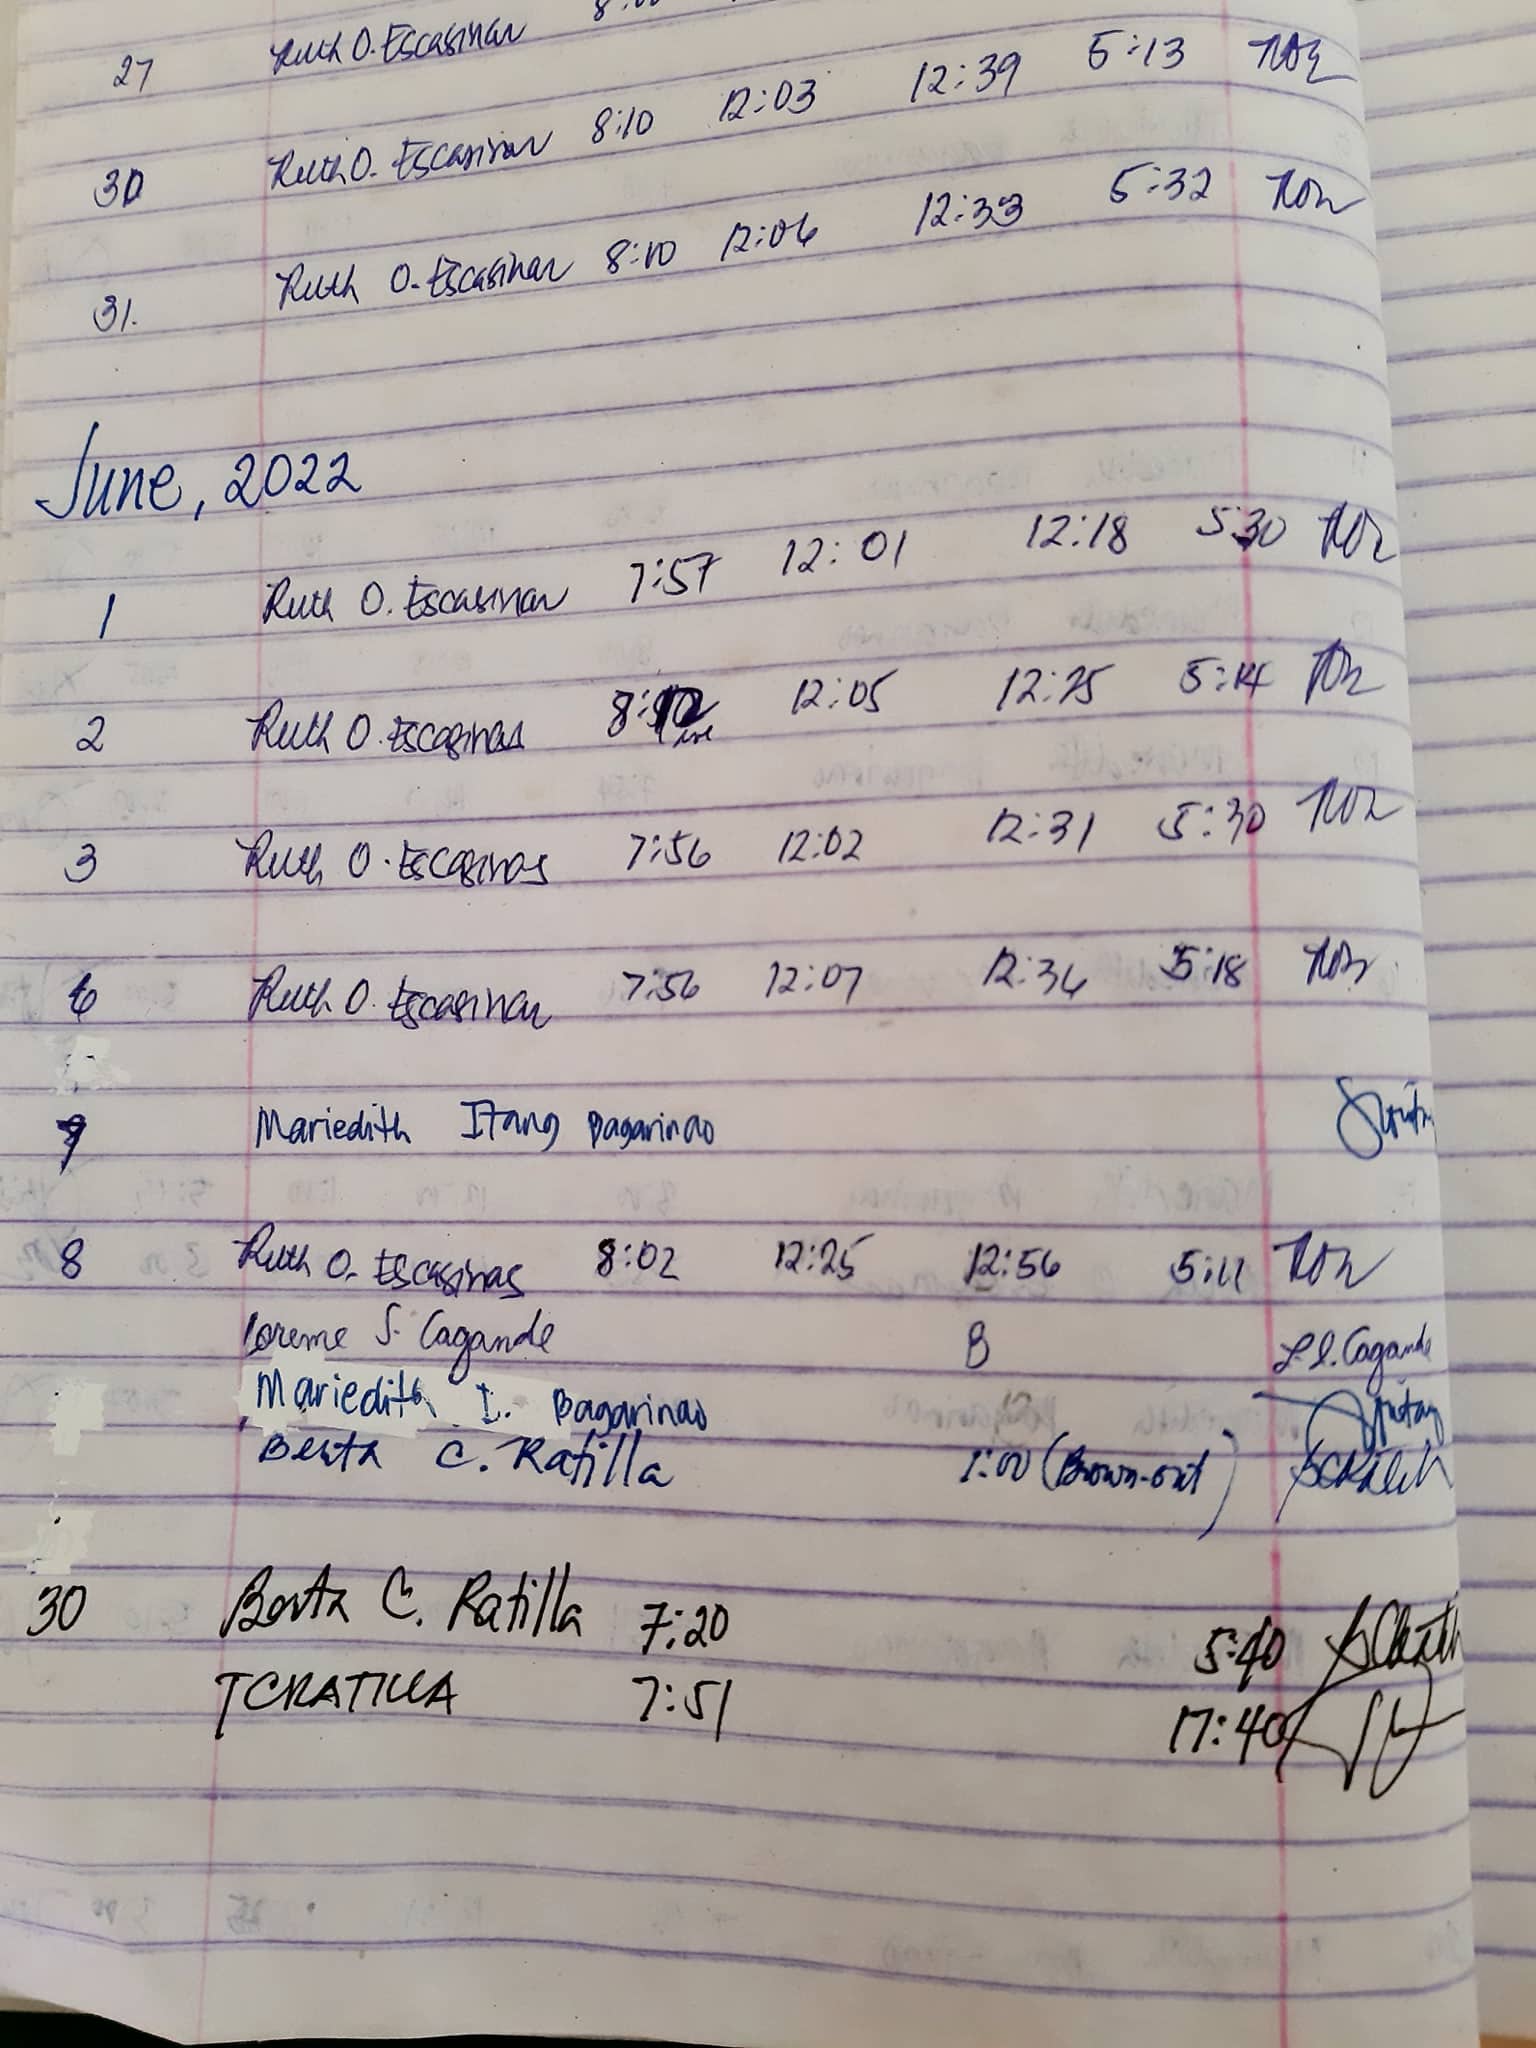 27 Ruth O. Escasinas
30 Ruth O. Escasinas 8:10 12:03 12:39 5:13
31. Ruth O. Escasinas 8:10 12:06 12:33 5:32
June, 2022
1 Ruth O. Escasinas 7:57 12:01 12:18 5:30
2 Ruth O. Escasinas 12:05 12:25 5:14
3 Ruth O. Escasinas 7:56 12:02 12:31 5:30
6 Ruth O. Escasinas 7:56 12:07 12:36 5:18
7 Mariedith Itang Bagarinao
8 Ruth O. Escasinas 8:02 12:25 12:56 5:11
Loreme S. Cagande B L.S. Cagande
Mariedith I. Bagarinao
Berta C. Ratilla 1:00 (Brown-out)
30 Berta C. Ratilla 7:20 5:40
TCRATILLA 7:51 17:40